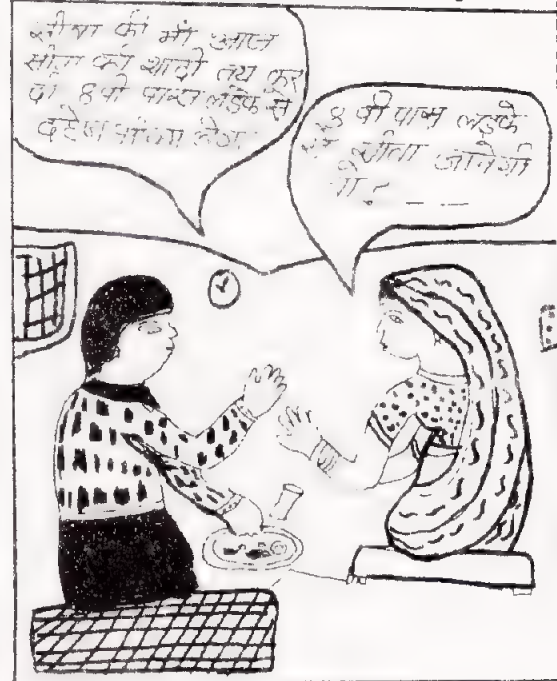 सीता की माँ आज
सीता की शादी तय कर
दी 8 वी पास लड़के से
दहेज
8 वी पास लड़के
से सीता जानेगी
तो ? _ _ _